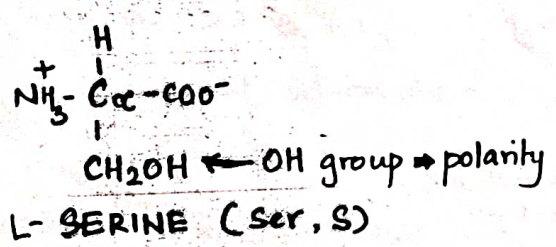 H
+
NH3- Cα-COO-
CH2OH ← OH group → polarity
L- SERINE (Ser, S)